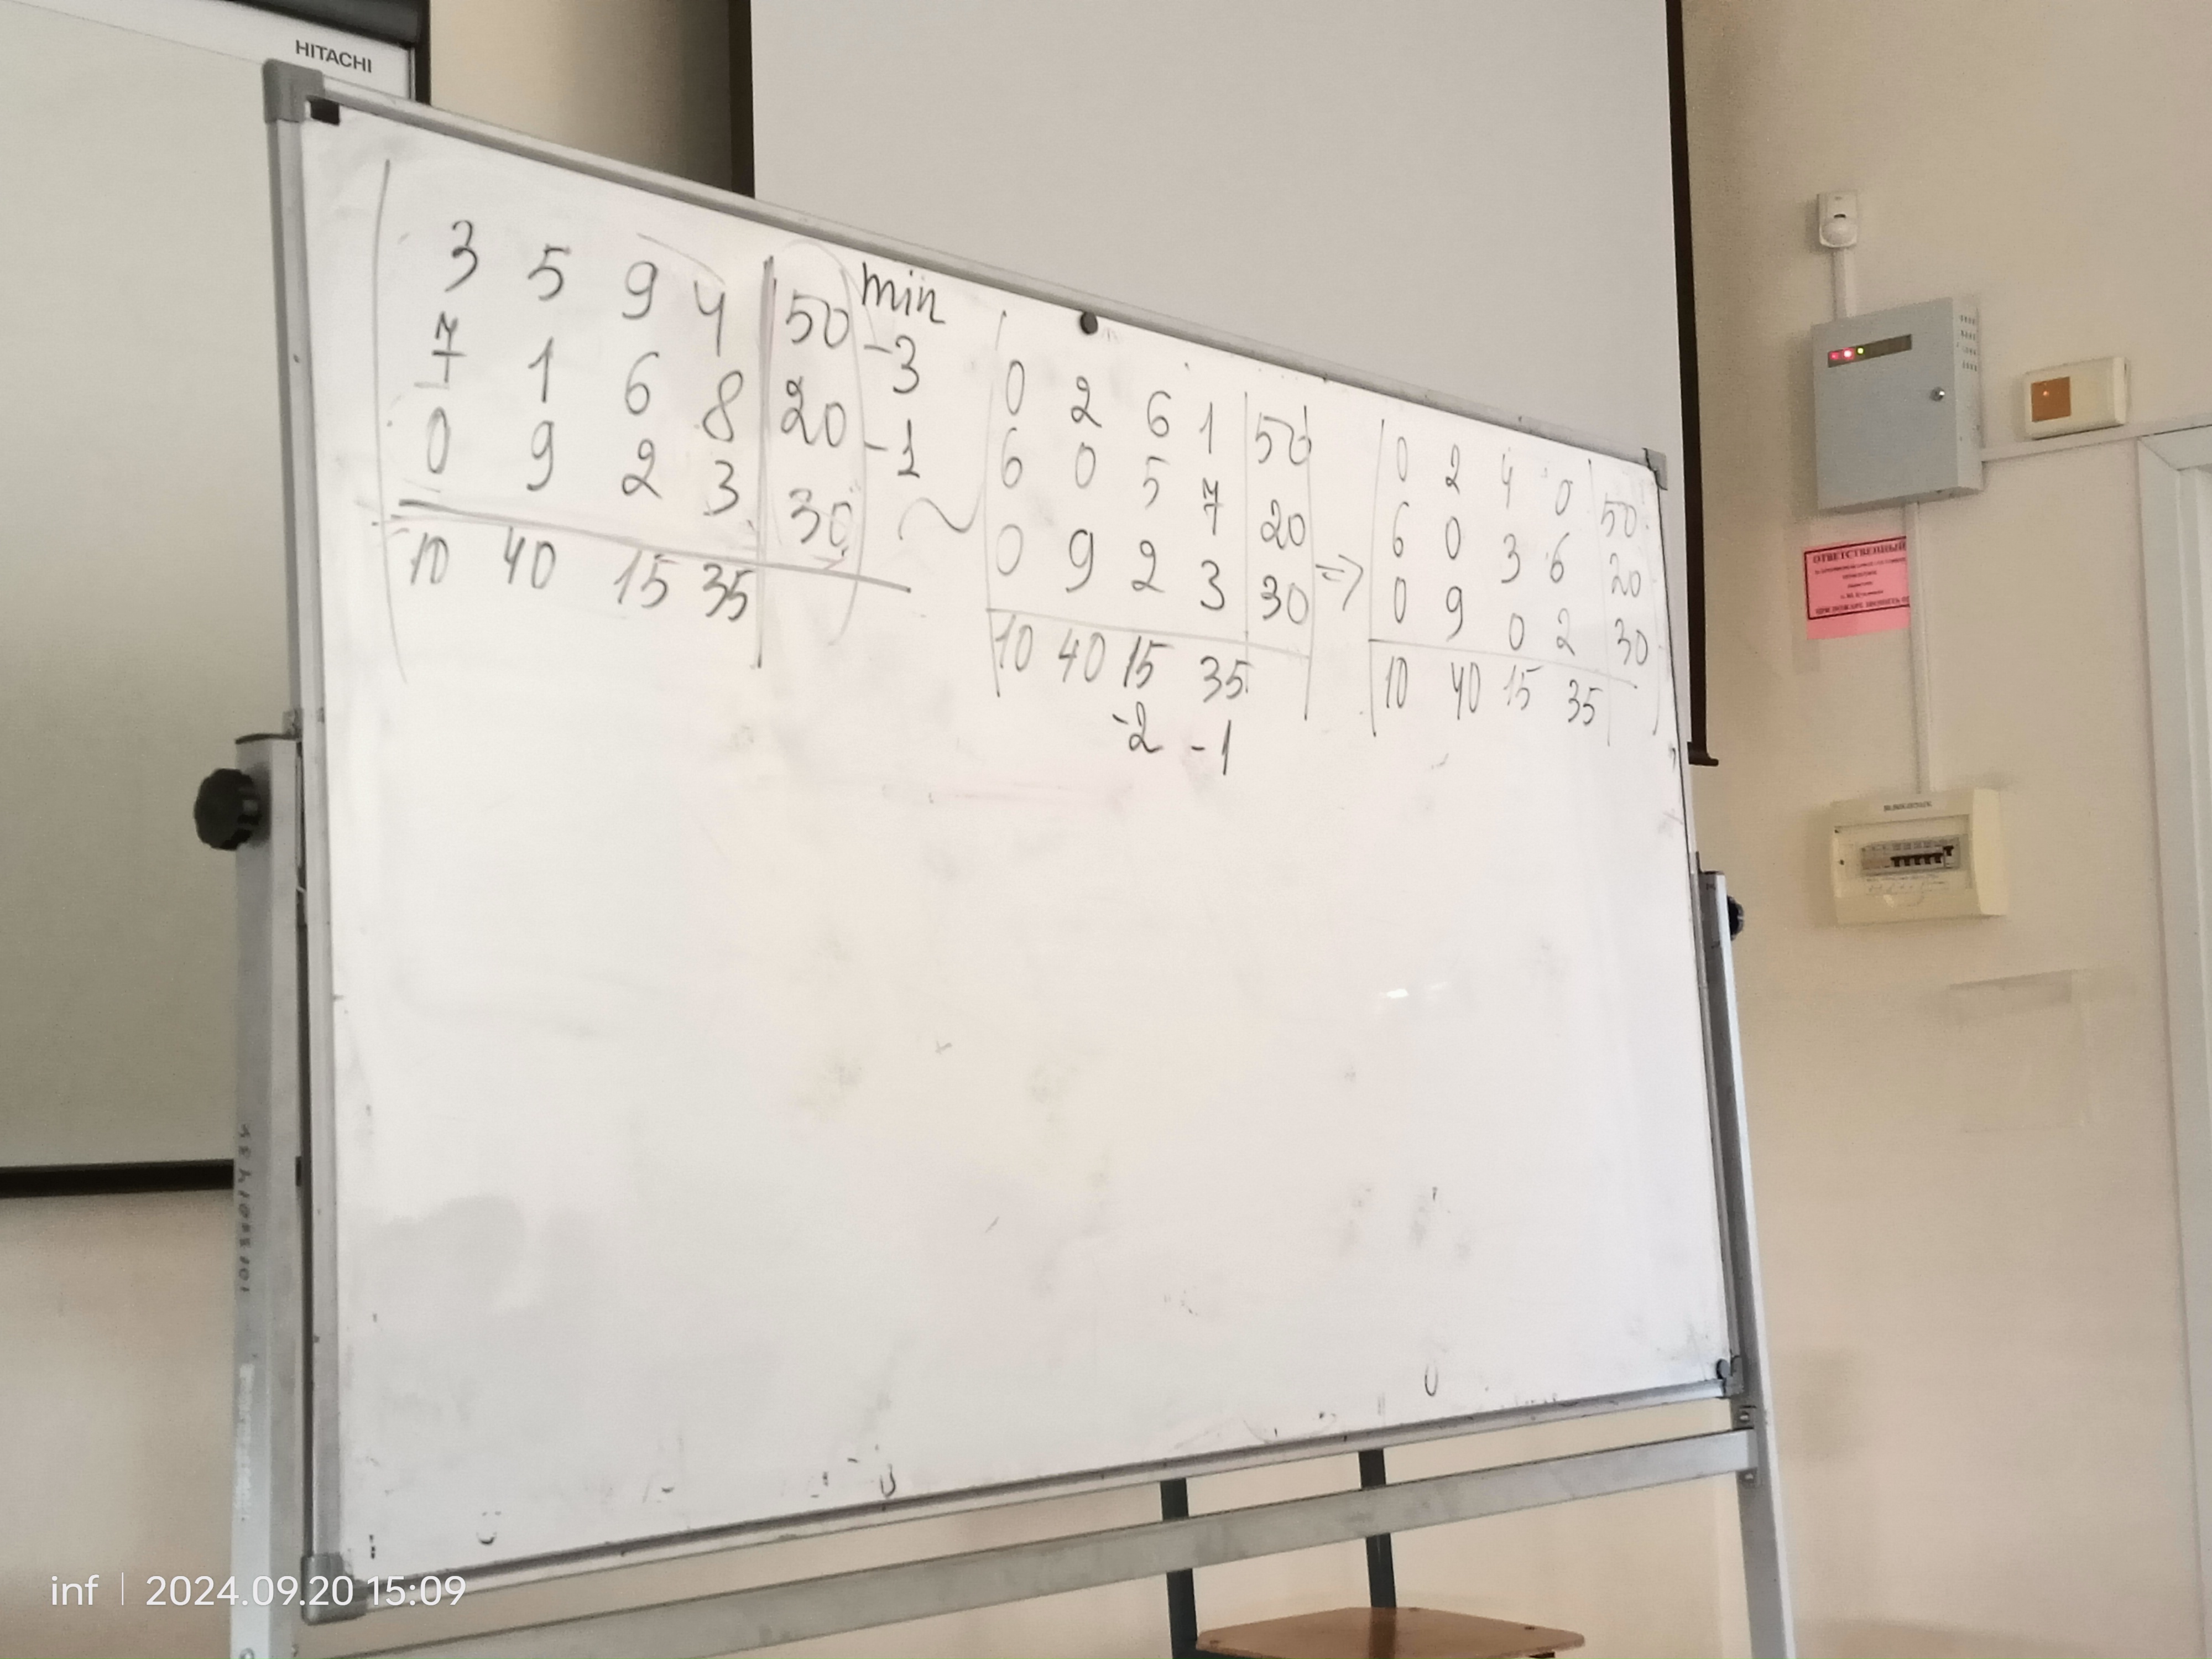 HITACHI
3 5 9 4 50 min
-3
7 1 6 8 20
-1
0 9 2 3 30
10 40 15 35
~
0 2 6 1 50
6 0 5 7 20
0 9 2 3 30
10 40 15 35
-2 -1
=>
0 2 4 0 50
6 0 3 6 20
0 9 0 2 30
10 40 15 35
ОТВЕТСТВЕННЫЙ
inf | 2024.09.20 15:09